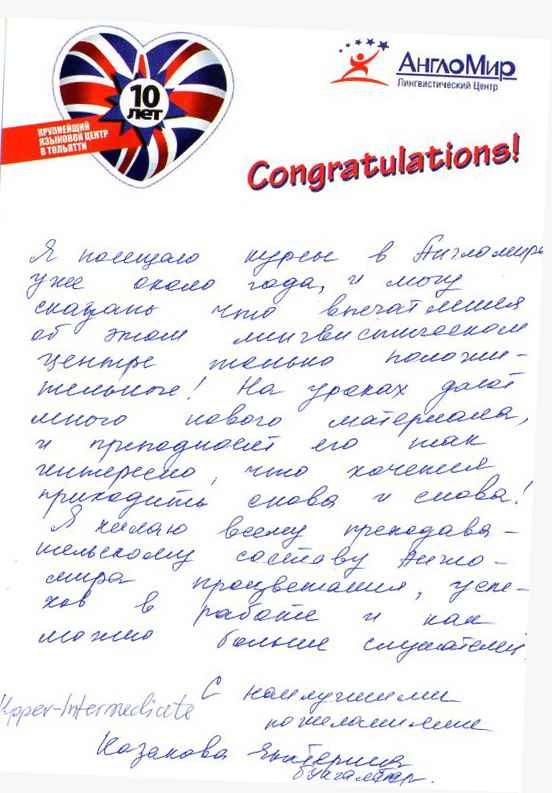 10
лет
КРУПНЕЙШИЙ
ЯЗЫКОВОЙ ЦЕНТР
В ТОЛЬЯТТИ
АнглоМир
Лингвистический Центр
Congratulations!
Я посещаю курсы в Англомире
уже около года, и могу
сказать что впечатления
об этом лингвистическом
центре только положи-
тельные! На уроках дают
много нового материала,
и преподносят его так
интересно, что хочется
приходить снова и снова!
Я желаю всему преподава-
тельскому составу Англо-
мира процветания, успе-
хов в работе и как
можно больше слушателей.
С наилучшими
пожеланиями
Upper-Intermediate
Казакова Екатерина
бухгалтер.